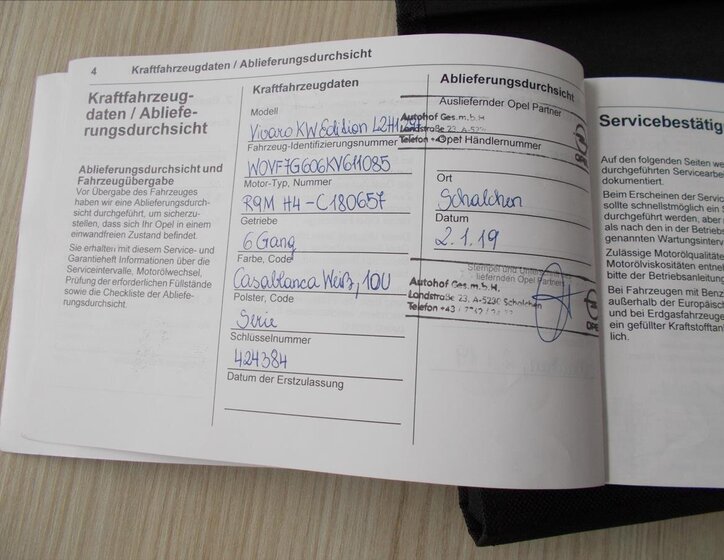 4 Kraftfahrzeugdaten / Ablieferungsdurchsicht
Kraftfahrzeug-
daten / Abliefe-
rungsdurchsicht
Ablieferungsdurchsicht und
Fahrzeugübergabe
Vor Übergabe des Fahrzeuges
haben wir eine Ablieferungsdurch-
sicht durchgeführt, um sicherzu-
stellen, dass sich Ihr Opel in einem
einwandfreien Zustand befindet.
Sie erhalten mit diesem Service- und
Garantieheft Informationen über die
Serviceintervalle, Motorölwechsel,
Prüfung der erforderlichen Füllstände
sowie die Checkliste der Abliefe-
rungsdurchsicht.
Kraftfahrzeugdaten
Modell
Vivaro KW Edition L2H1
Fahrzeug-Identifizierungsnummer
W0VF7G606KV611085
Motor-Typ, Nummer
R9M H4-C180657
Getriebe
6 Gang
Farbe, Code
Casablanca Weiß, 10U
Polster, Code
Serie
Schlüsselnummer
424384
Datum der Erstzulassung
Ablieferungsdurchsicht
Ausliefernder Opel Partner
Autohof Ges.m.b.H.
Landstraße 23, A-523
Telefon +43
Opel Händlernummer
Ort
Schalchen
Datum
2.1.19
Stempel und Unterschrift
liefernden Opel Partner
Autohof Ges.m.b.H.
Landstraße 23, A-5230 Schalchen
Telefon +43
OPEL
Servicebestätig
Auf den folgenden Seiten we
durchgeführten Servicearbe
dokumentiert.
Beim Erscheinen der Servic
sollte schnellstmöglich ein S
durchgeführt werden, aber
als nach den in der Betrieb
genannten Wartungsinterv
Zulässige Motorölqualitäte
Motorölviskositäten entne
bitte der Betriebsanleitung
Bei Fahrzeugen mit Benz
außerhalb der Europäisch
und bei Erdgasfahrzeuge
ein gefüllter Kraftstofftan
lich.